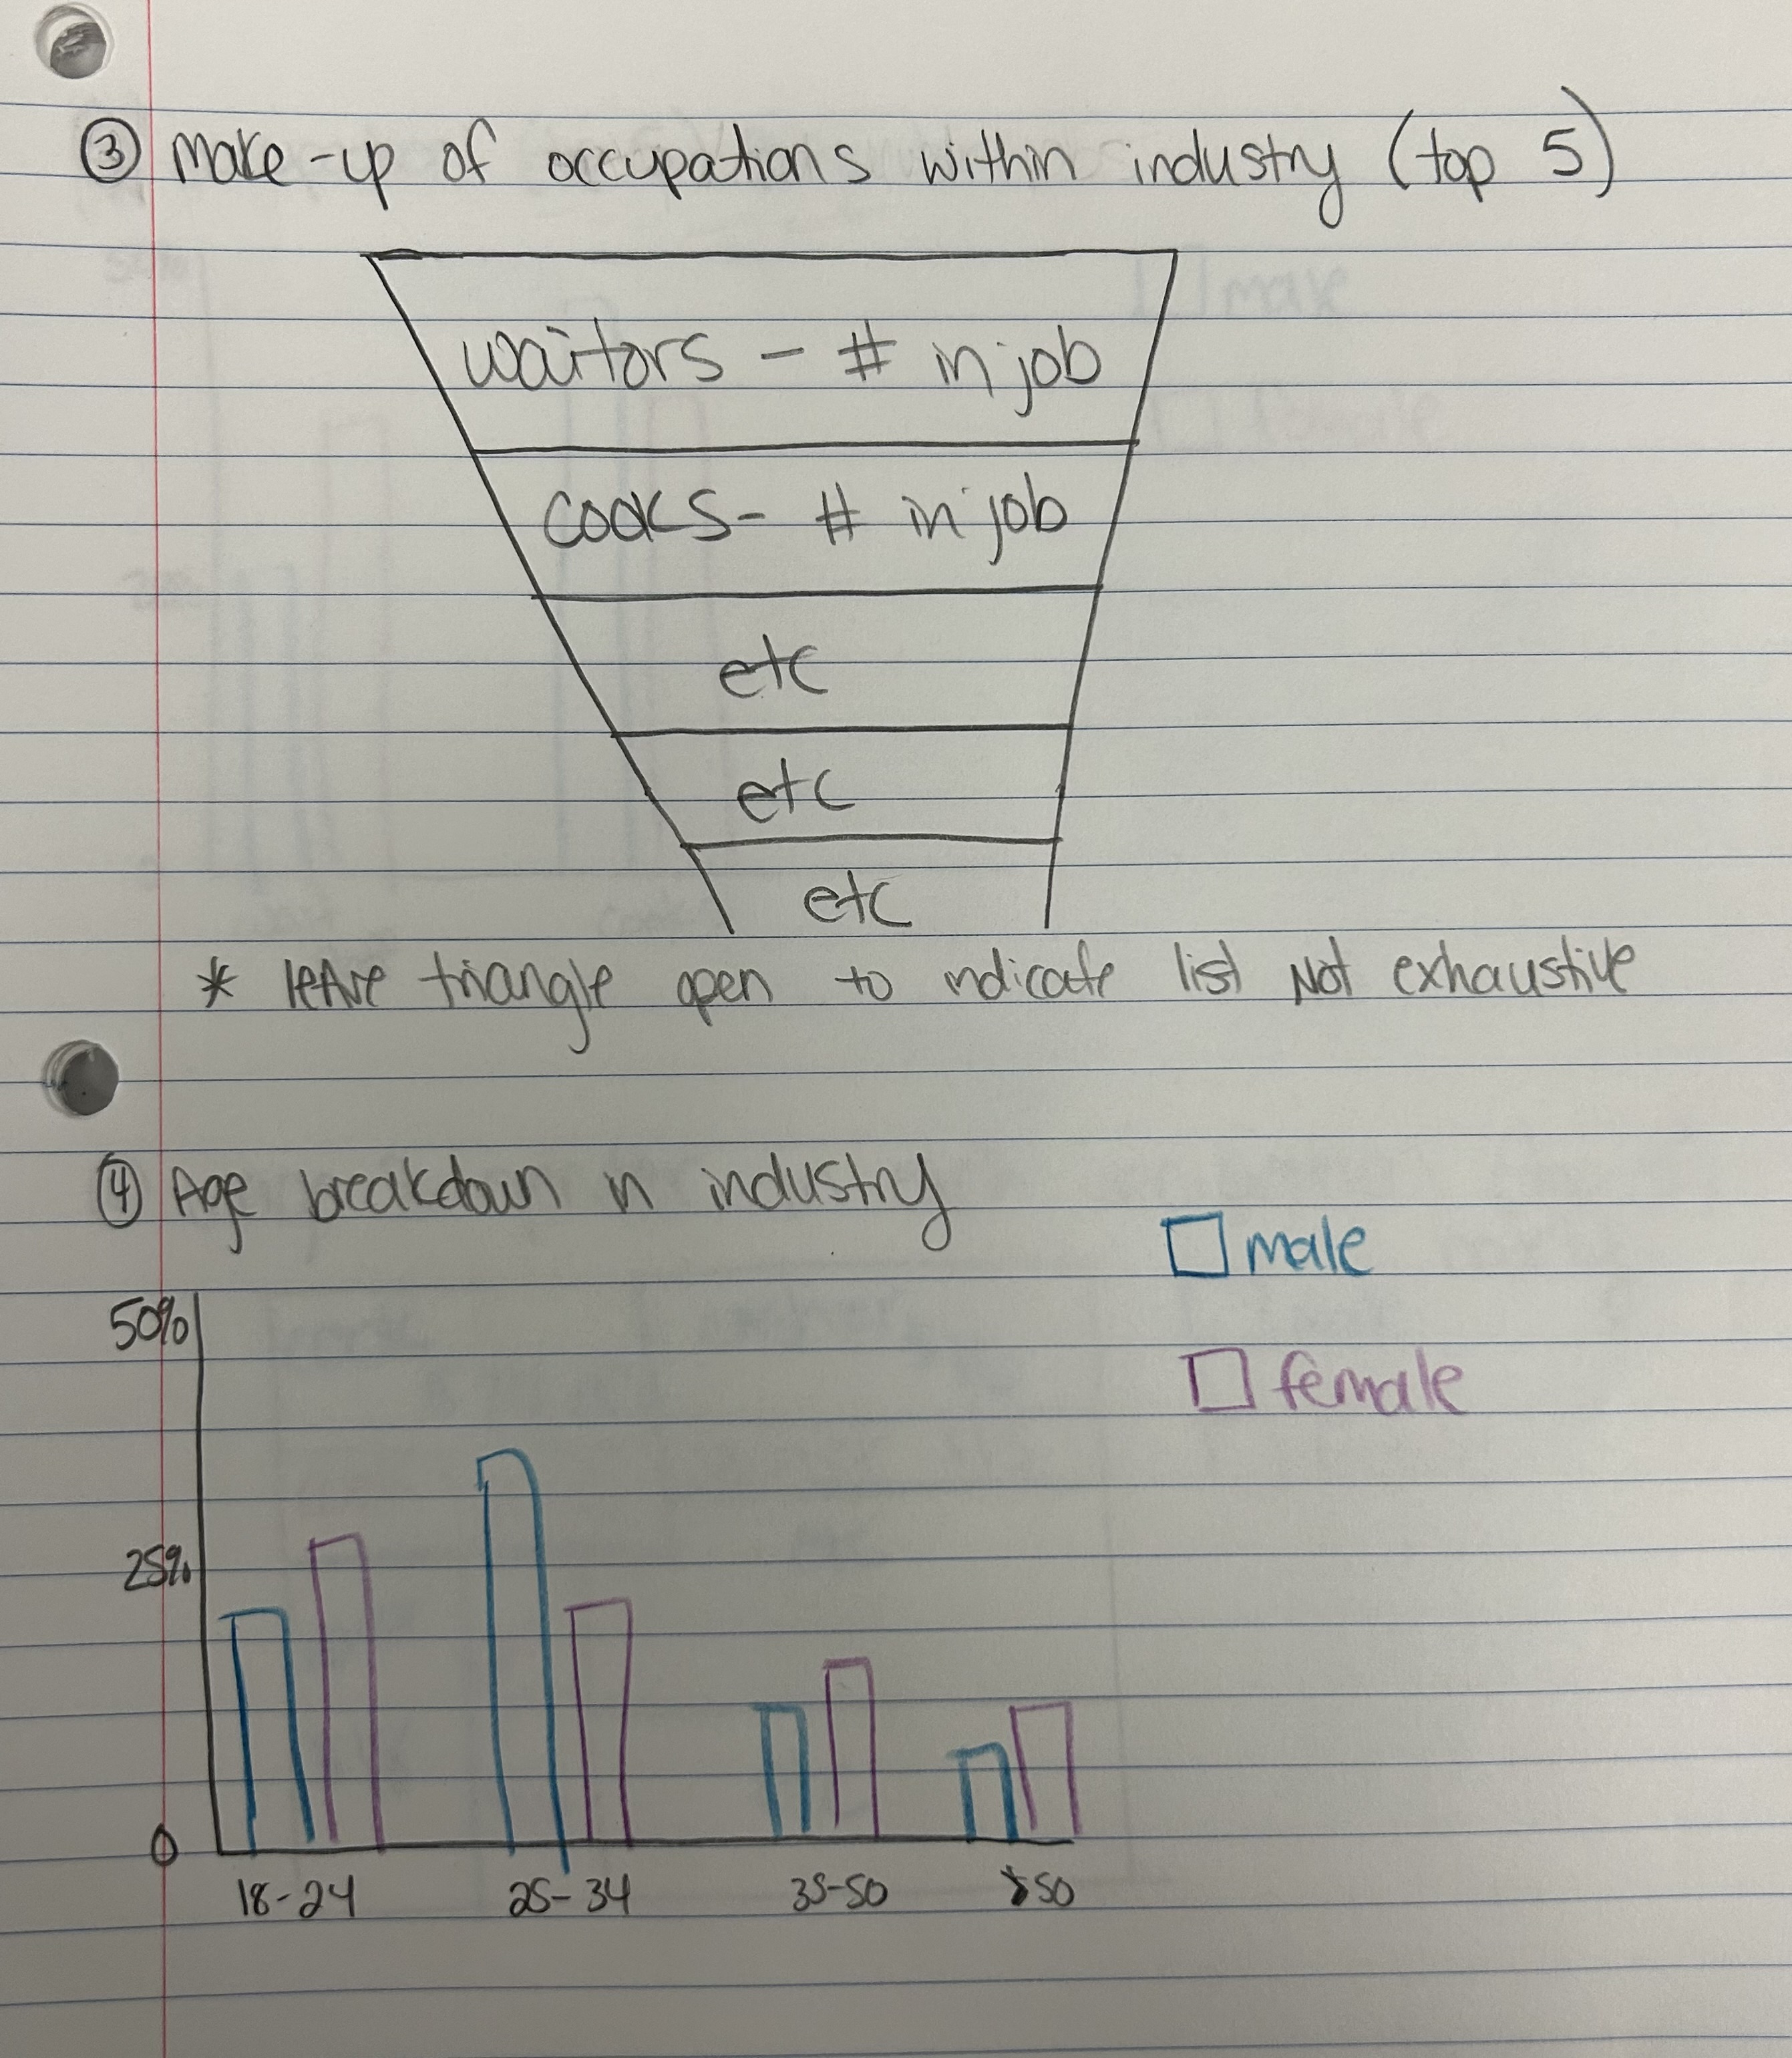 ③ Make-up of occupations within industry (top 5)
waitors - # in job
cooks- # in job
etc
etc
etc
* leave triangle open to indicate list Not exhaustive
④ Age breakdown in industry
male
female
50%
25%
0
18-24 25-34 35-50 >50